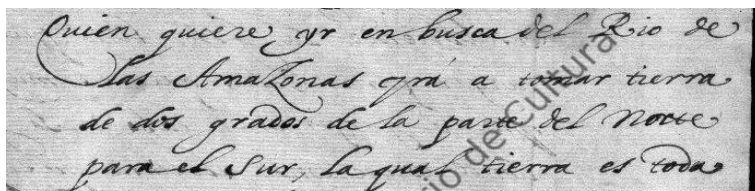 Quien quiere yr en busca del Rio de
las Amazonas yrá a tomar tierra
de dos grados de la parte del Norte
para el Sur, la qual tierra es toda
io de Cultura